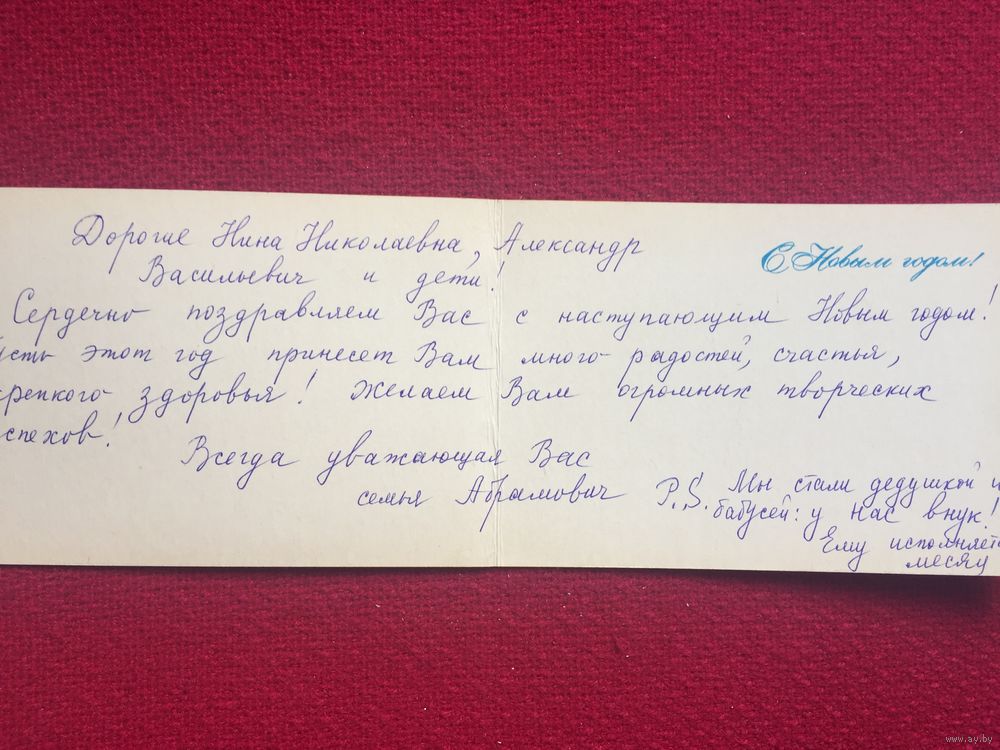 Дорогие Нина Николаевна, Александр
Васильевич и дети!
С Новым годом!
Сердечно поздравляем Вас с наступающим Новым годом!
усть этот год принесет Вам много радостей, счастья,
крепкого здоровья! Желаем Вам огромных творческих
спехов!
Всегда уважающая Вас
семья Абрамович
P.S. Мы стали дедушкой и
бабусей: у нас внук!
Ему исполняетс
месяц
www.ay.by